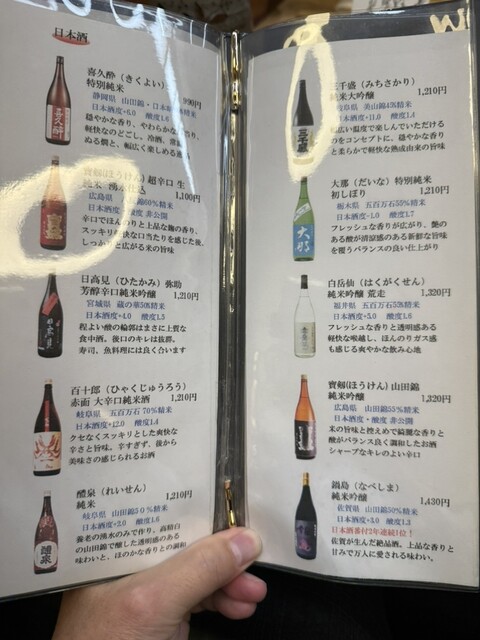 日本酒
喜久酔（きくよい）
特別純米
990円
静岡県 山田錦・日本
日本酒度+6.0 酸度1.
穏やかな香り、やわらかな
軽快なのどごし。冷酒、常
ぬる燗と、幅広く楽しめる
寳剱(ほうけん) 超辛口 生
純米 湧水仕込
1,100円
広島県
60%精米
日本酒度 非公開
辛口でほんのりと上品な麹の香り、
スッキリ
な口当たりを感じた後、
しっか
と広がる米の旨味
日高見（ひたかみ）弥助
芳醇辛口純米吟醸
1,210円
宮城県 蔵の華50%精米
日本酒度+4.0 酸度1.5
程よい酸の輪郭はまさに上質な
食中酒。後口のキレは抜群、
寿司、魚料理には良く合います
百十郎（ひゃくじゅうろう）
赤面 大辛口純米酒
1,210円
岐阜県 五百万石 70％精米
日本酒度+12.0 酸度1.4
クセなくスッキリとした爽快な
辛さと旨味。辛すぎず、後から
美味さの感じられるお酒
醴泉（れいせん）
純米
1,210円
岐阜県 山田錦５０％精米
日本酒度+3.0 酸度1.6
養老の湧水のみで作り、高精白
の山田錦で醸した透明感のある
味わいと、ほのかな香りとの調和
三千盛（みちさかり）
純米大吟醸
1,210円
岐阜県 美山錦45%精米
日本酒度+11.0 酸度1.4
幅広い温度で楽しんでいただける
のをコンセプトに、穏やかな香り
と柔らかで軽快な熟成由来の旨味
大那（だいな）特別純米
初しぼり
1,210円
栃木県 五百万石55%精米
日本酒度-1.0 酸度1.7
フレッシュな香りが広がり、艶の
ある酸が清涼感のある新鮮な旨味
を覆うバランスの良い仕上がり
白岳仙（はくがくせん）
純米吟醸 荒走
1,320円
福井県 五百万石55%精米
日本酒度+5.0 酸度1.6
フレッシュな香りと透明感ある
軽快な喉越し、ほんのりガス感
も感じる爽やかな飲み心地
寳剱(ほうけん) 山田錦
純米吟醸
1,320円
広島県 山田錦55%精米
日本酒度・酸度 非公開
米の旨味と控えめで綺麗な香りと
酸がバランス良く調和したお酒
シャープなキレのよい辛口
鍋島（なべしま）
純米吟醸
1,430円
佐賀県 山田錦50%精米
日本酒度+2.0 酸度1.6
日本酒番付2年連続1位！
佐賀が生んだ絶品酒。上品な香りと
甘みで万人に愛される味わい。